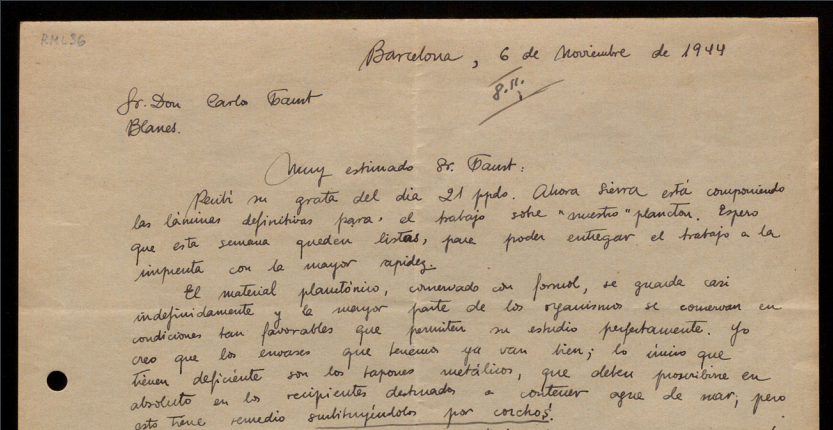 RML56
Barcelona, 6 de Noviembre de 1944
8.11.
Sr. Don Carlo Faust
Blanes.
Muy estimado Sr. Faust:
Recibí su grata del dia 21 ppdo. Ahora Sierra está componiendo
las láminas definitivas para el trabajo sobre "nuestro" plancton. Espero
que esta semana queden listas, para poder entregar el trabajo a la
imprenta con la mayor rapidez.
El material planctónico, conservado con formol, se guarda casi
indefinidamente y la mayor parte de los organismos se conservan en
condiciones tan favorables que permiten su estudio perfectamente. Yo
creo que los envases que tenemos ya van bien; lo único que
tienen deficiente son los tapones metálicos, que deben proscribirse en
absoluto en los recipientes destinados a contener agua de mar; pero
esto tiene remedio sustituyéndolos por corchos.